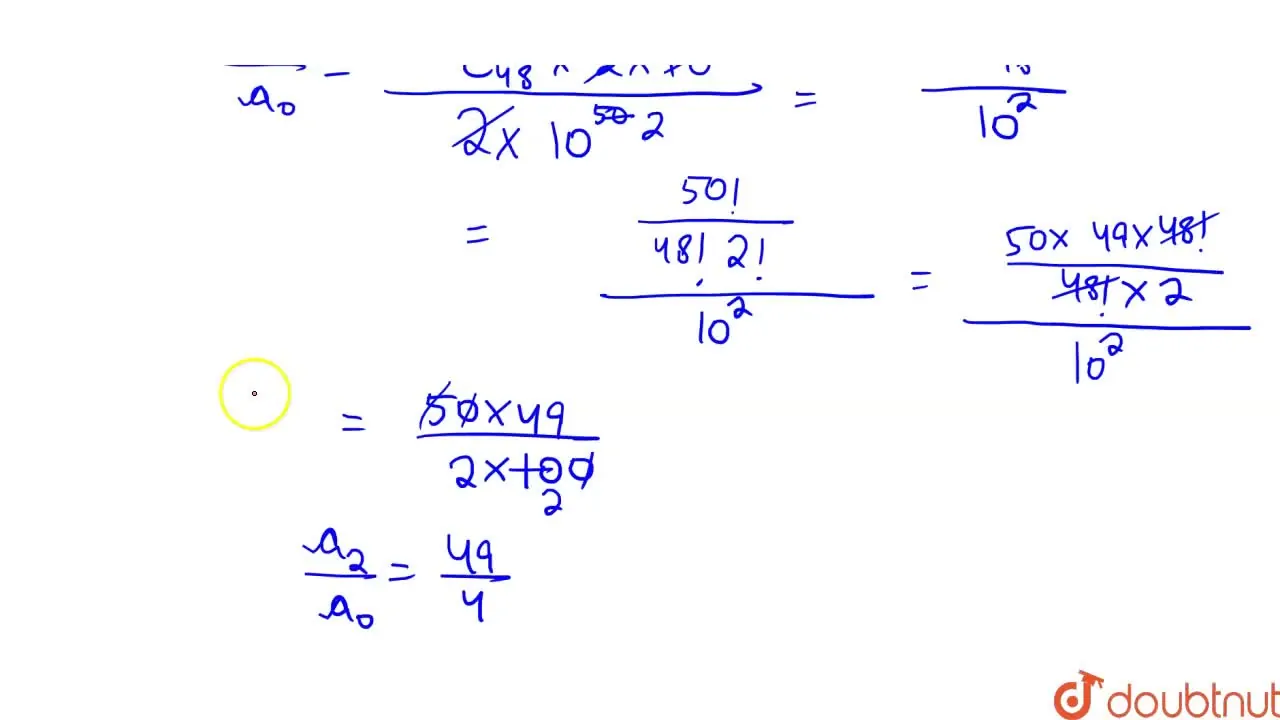 a₀ - 2 x 10⁵⁰ 2 = 10²
= 50! / 48! 2! / 10² = 50 x 49 x 48! / 48! x 2 / 10²
= 50 x 49 / 2 x 100 2
a₂ / a₀ = 49 / 4
doubtnut